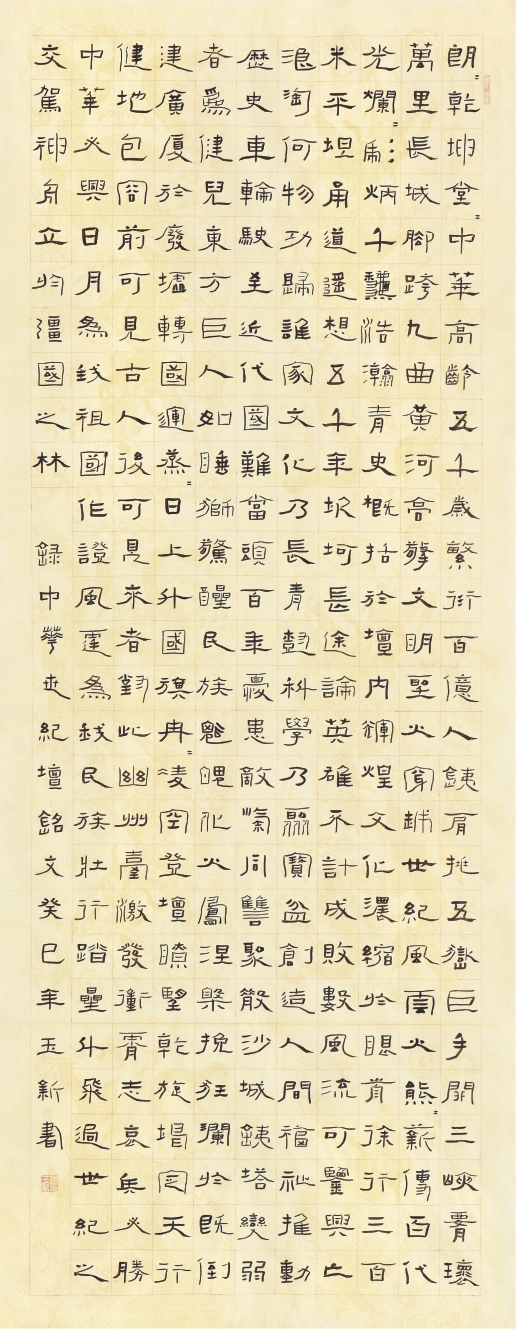 朗〻乾坤堂〻中華高齡五千歲繁衍百億人鐵肩挑五嶽巨手開三峽胷懷
萬里長城腳跨九曲黃河高擎文明聖火穿越世紀風雲火熊〻薪傳百代
光爛〻彪炳千龝浩瀚青史概括於壇內輝煌文化濃縮於眼前徐行三百
米平坦甬道遥想五千年坎坷長途論英雄不計成敗數風流可鑒興亡
浪淘何物功歸誰家文化乃長青樹科學乃聚寶盆創造人間福祉推動
歷史車輪駛至近代國難當頭百年憂患敵愾同讎聚散沙城鐵塔變弱
者為健兒東方巨人如睡獅驚醒民族魂魄化火鳳涅槃挽狂瀾於既倒
建廣廈於廢墟轉國運蒸〻日上升國旗冉〻凌空登壇瞭望乾旋坤定天行
健地包容前可見古人後可見來者對此幽州臺激發衝霄志哀兵必勝
中華必興日月為我祖國作證風雲為我民族壯行踏曐斗飛過世紀之
交駕神舟立於彊國之林 錄中華世紀壇銘文癸巳年玉新書